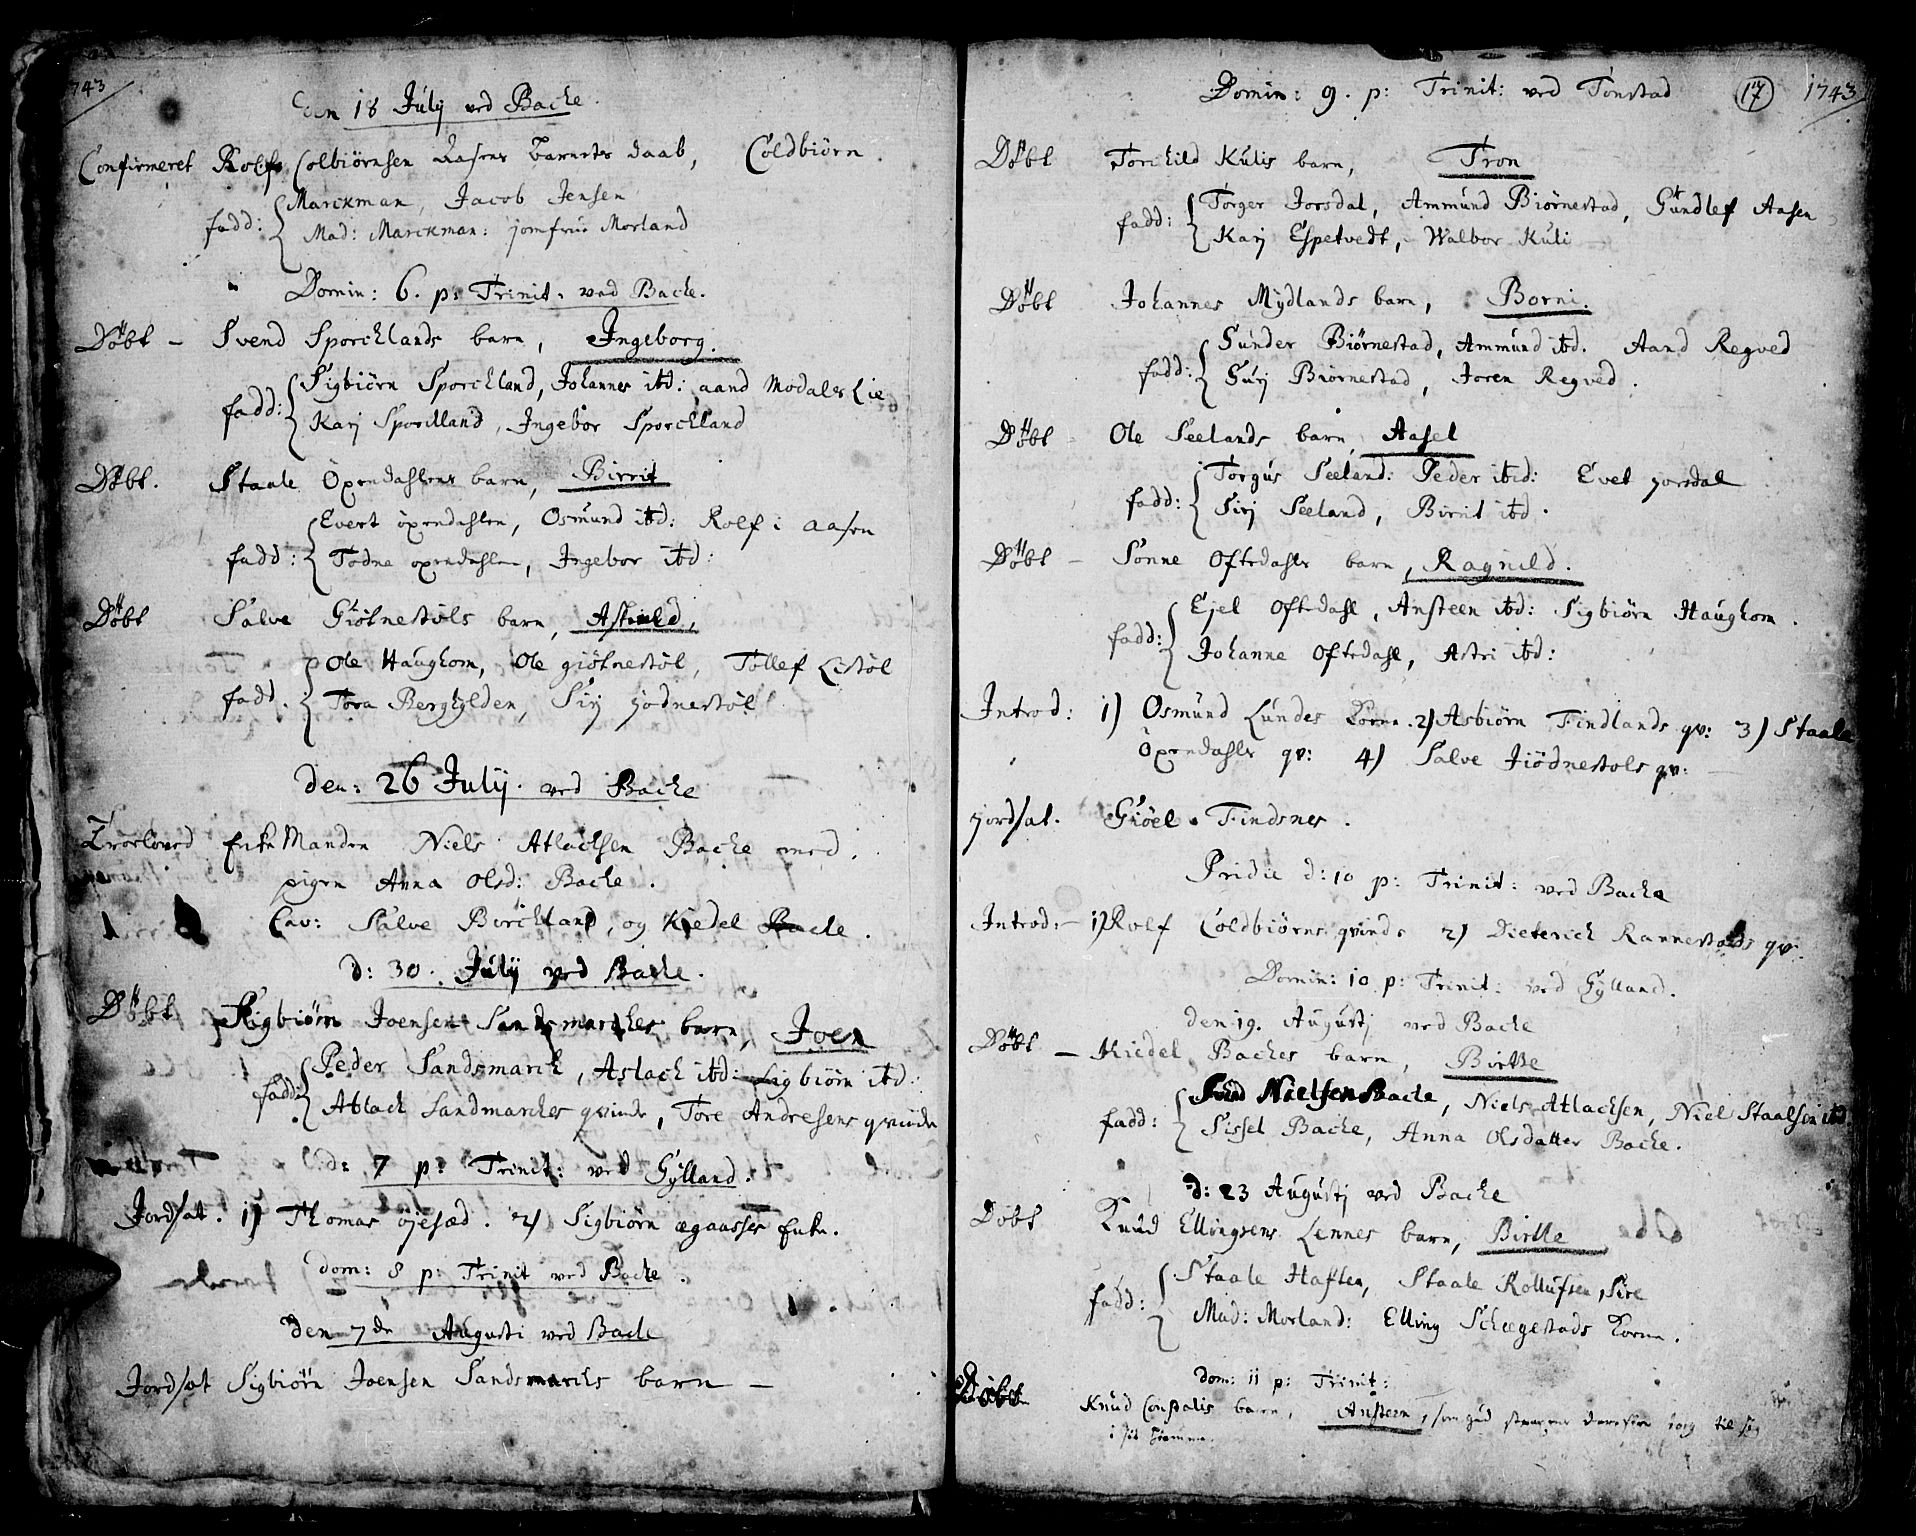 1743
den 18 Julij ved Backe.
Confirmeret Rolf Colbiörnsen Aasens barnets daab, Coldbiörn.
fadd: Marckman, Jacob Jensen
Mad: Marckman: jomfrue Morland
Domin: 6. p: Trinit. ved Backe.
Döbt - Svend Sporcklands barn, Ingeborg.
fadd: Sigbiörn Sporckland, Johannes ibd: aand Modals Lie
Karj Sporckland, Ingebor Sporckland
Döbt. Staale Öxendahlens barn, Birrit
fadd: Evert öxendahlen, Osmund ibd: Rolf i Aasen
Todne oxendahlen, Ingebor ibd:
Döbt Salve Giödnestöls barn,
fadd. Ole Haughom, Ole giödnestöl, Tollef Lestöl
Tora Berghylden, Sirj jödnestöl
den: 26 Julij. ved Backe
Troeloved Enke Manden Niels Atlacksen Backe med
pigen Anna Olsd: Backe.
Cav: Salve Birckland, og Kiedel Backe.
d: 30. Julij ved Backe.
Döbt Sigbiörn Joensen Sandsmarckes barn, Joen
fadd: Peder Sandsmarck, Aslack ibd: Sigbiörn ibd:
Atlack Sandmarckes qvinde, Tore Andresens qvinde
d: 7 p: Trinit: ved Gylland.
Jordsat. 1) Thomas öjesæd. 2) Sigbiörn ægaasses Enke.
dom: 8 p: Trinit ved Backe.
den 7de Augusti ved Backe
Jordsat Sigbiörn Joensen Sandsmarcks barn -
Domin: 9. p: Trinit: ved Tonstad 17 1743
Döbt Torckild Kulis barn, Tron
fadd: Torger Josdal, Ammund Biörnestad, Gundlef Aasen
Karj Espetvedt, Walbor Kuli
Döbt Johannes Mydlands barn, Borni.
fadd: Gunder Biörnestad, Ammund ibd. Aand Regved
Gurj Biörnestad, Joren Regved.
Döbt Ole Seelands barn, Aasel
fadd: Torgus Seeland: Peder ibid: Evet josdal
Sirj Seeland, Birit ibd.
Döbt - Sönne Oftedahls barn, Ragnild.
fadd: Ejel Oftedahl, Ansteen ibd: Sigbiörn Haughom.
Johanne Oftedahl, Astri ibd:
Introd: 1) Osmund Lundes Kone. 2) Asbiörn Findlands qv: 3) Staale
Öxendahls qv: 4) Salve Jiödnestols qv:
jordsat. Giöel Findsnes.
Pridie d: 10 p: Trinit: ved Backe
Introd: - 1) Rolf Coldbiörns qvinde 2) Dieterich Rannestads qv:
Domin: 10 p: Trinit: ved Gylland.
den 19. Augustj ved Backe
Döbt - Kiedel Backes barn, Birthe
fadd: Svend Nielsen Backe, Niels Atlacksen, Niel Staalsen ibd.
Sissel Backe, Anna Olsdatter Backe.
d: 23 Augustj ved Backe
Döbt Knud Ellingsens Lennes barn, Birtte
fadd: Staale Haften, Staale Rollufsen, Sire
Mad: Morland: Elling Schegestads Kone.
dom: 11 p: Trinit:
Döbt Knud Constalis barn, Ansteen, som gud strax derefter tog til sig
i sit hiemme.